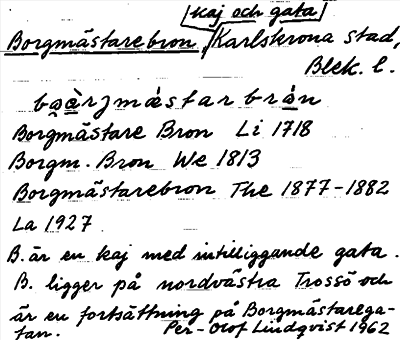 kaj och gata
Borgmästarebron, Karlskrona stad,
Blek. l.
Borgmästare Bron Li 1718
Borgm. Bron We 1813
Borgmästarebron The 1877-1882
La 1927
B. är en kaj med intilliggande gata.
B. ligger på nordvästra Trossö och
är en fortsättning på Borgmästarega-
tan. Per-Olof Lindqvist 1962